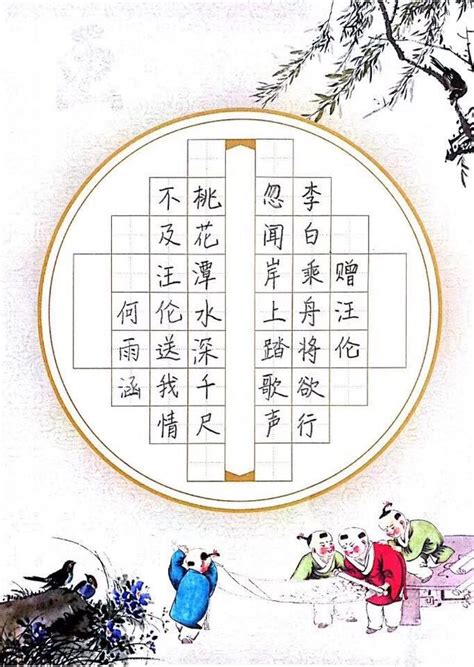 赠汪伦
李白乘舟将欲行
忽闻岸上踏歌声
桃花潭水深千尺
不及汪伦送我情
何雨涵